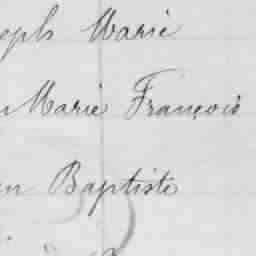 oseph Marie
Marie François
n Baptiste